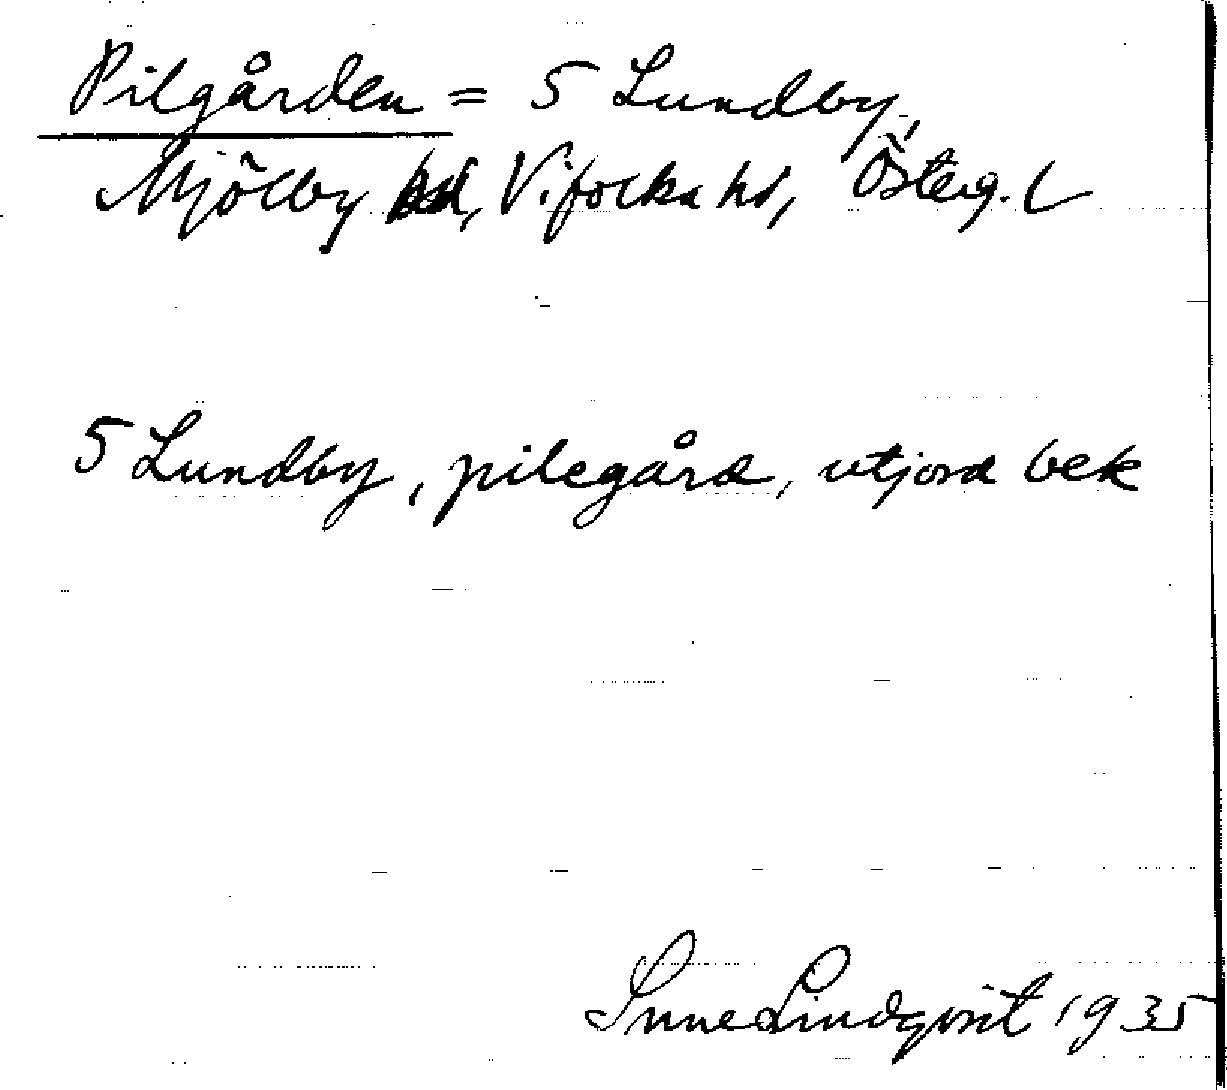 Pilgården = 5 Lundby,
Mjölby sd, Vifolka hd, Österg. l
5 Lundby, pilegård, utjord bek
Sune Lindqvist 1935